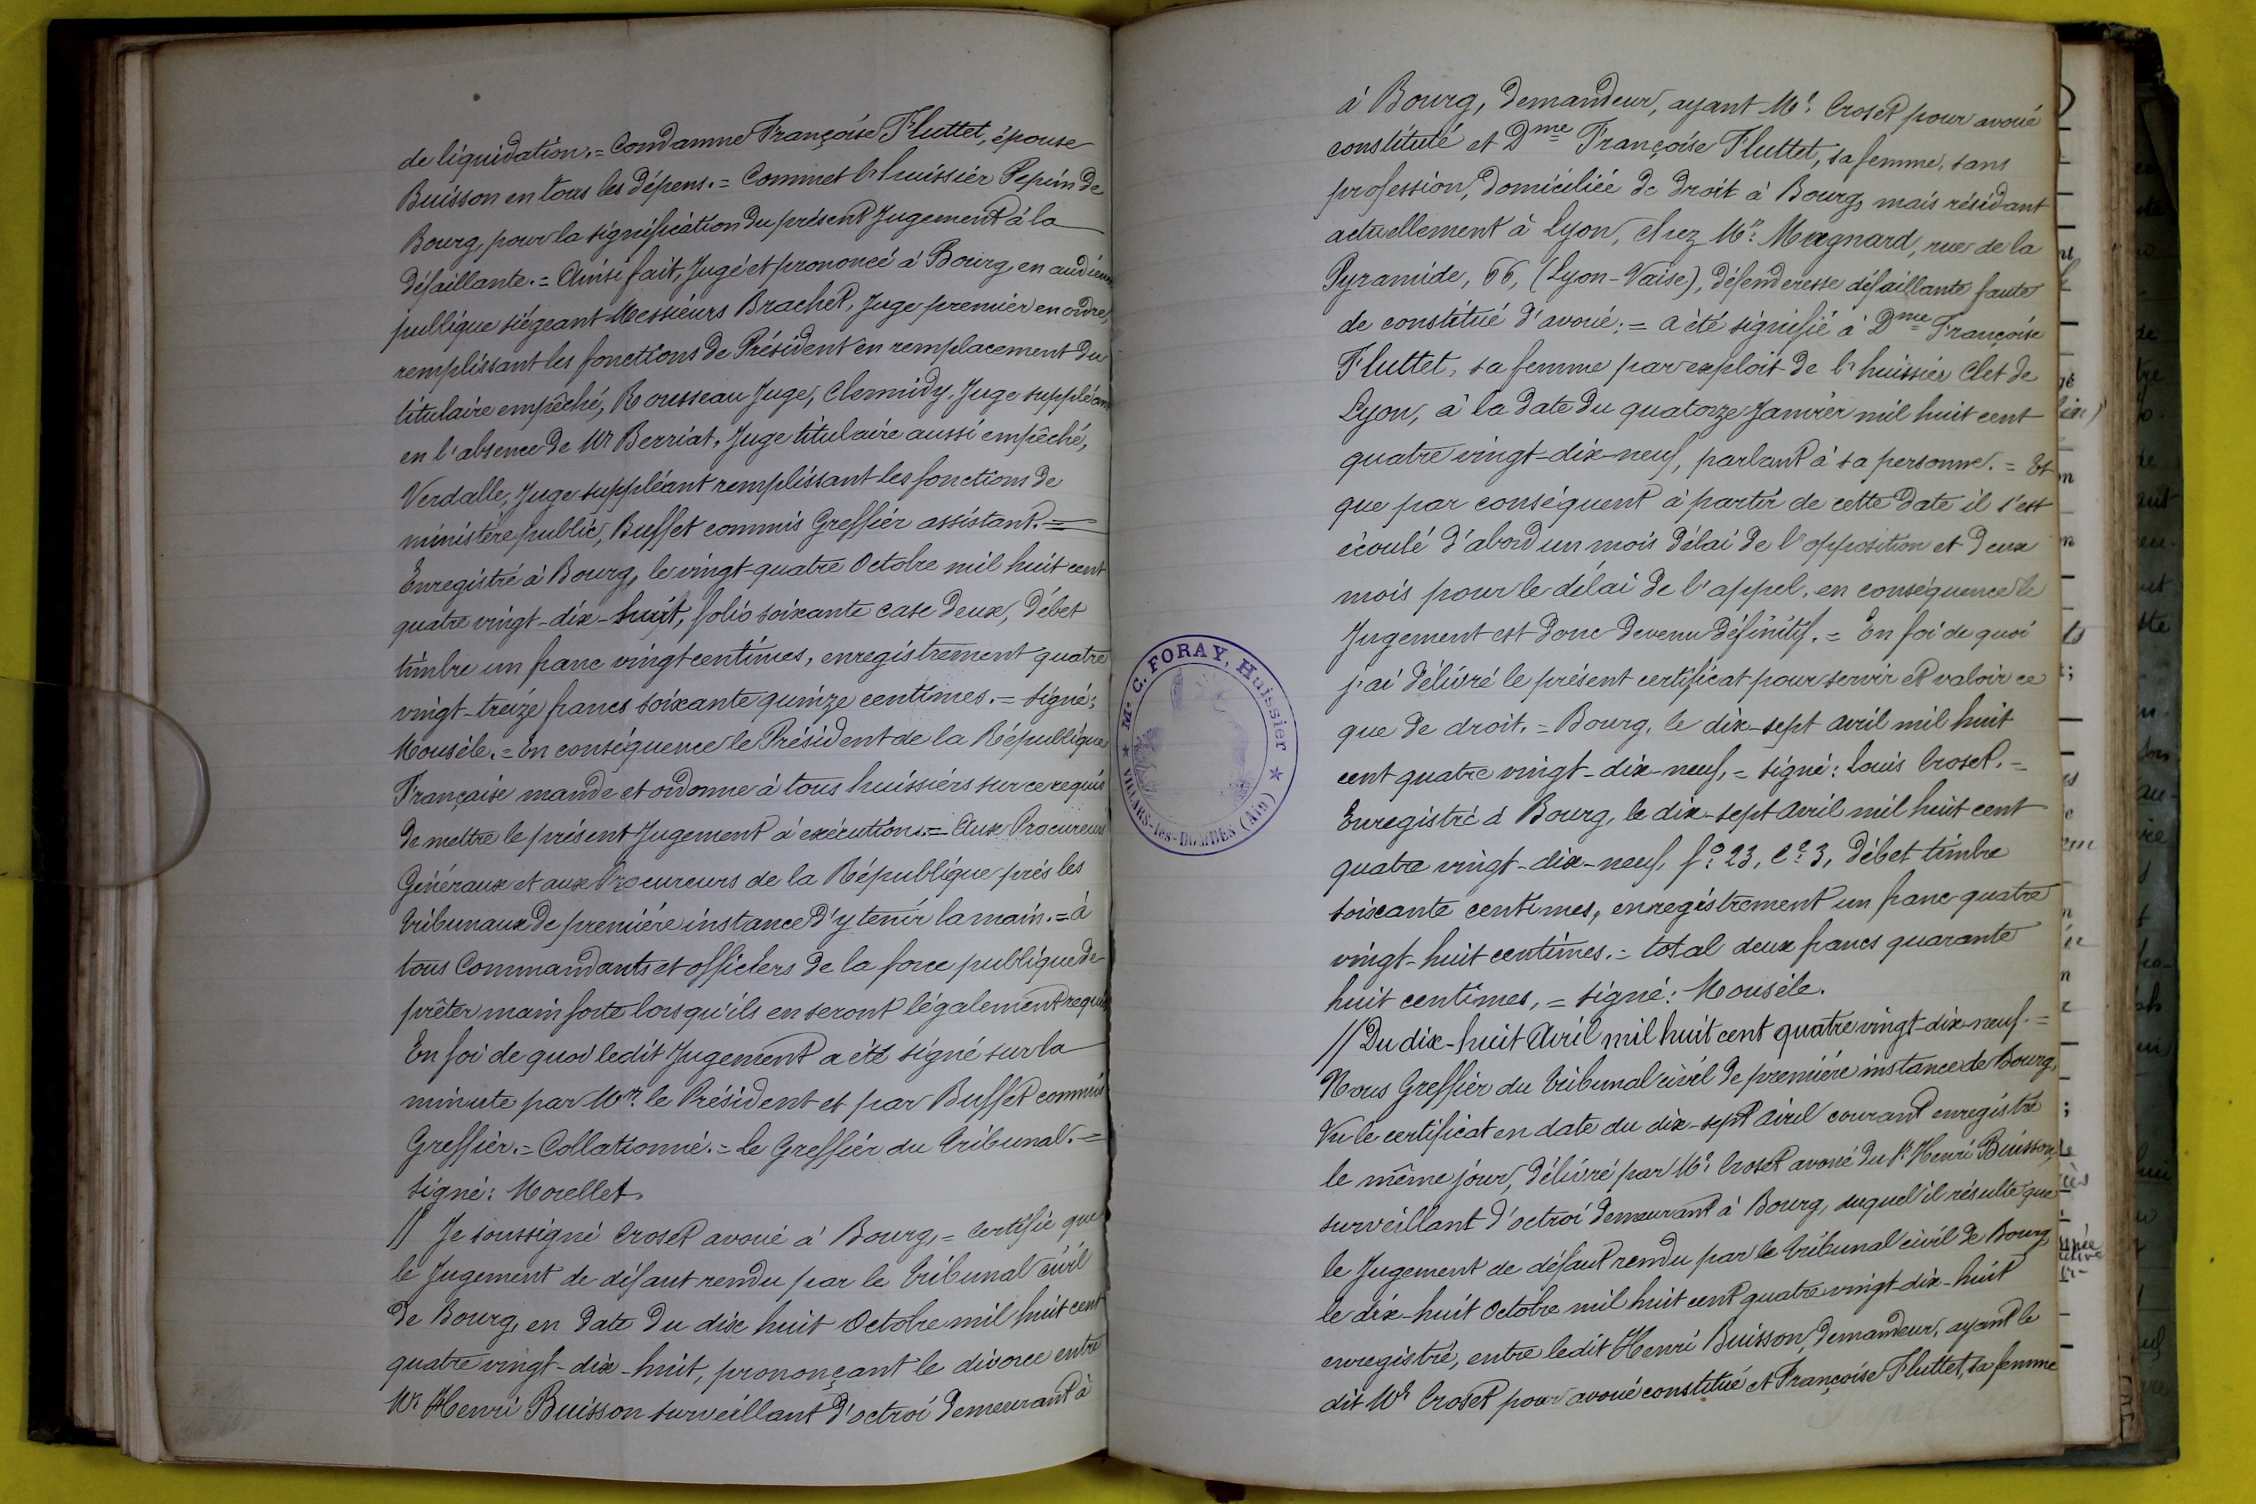 de liquidation. = Condamne Françoise Fluttet, épouse
Buisson en tous les dépens. = Commet l'huissier Pepin de
Bourg, pour la signification du présent Jugement à la
défaillante. = Ainsi fait, Jugé et prononcé à Bourg, en audience
publique siégeant Messieurs Brachet, Juge premier en ordre,
remplissant les fonctions de Président en remplacement du
titulaire empêché, Rousseau Juge, Chomidy, Juge suppléant
en l'absence de Mr Berriat, Juge titulaire aussi empêché,
Verdalle, Juge suppléant remplissant les fonctions de
ministère public, Buffet commis Greffier assistant. =
Enregistré à Bourg, le vingt-quatre Octobre mil huit cent
quatre vingt-dix-huit, folio soixante case deux, Débet
timbre un franc vingt centimes, enregistrement quatre
vingt-treize francs soixante quinze centimes. = Signé:
Mousèle. = En conséquence le Président de la République
Française mande et ordonne à tous huissiers sur ce requis
de mettre le présent Jugement à exécution. = Aux Procureurs
Généraux et aux Procureurs de la République près les
tribunaux de première instance d'y tenir la main. = à
tous Commandants et officiers de la force publique de
prêter main forte lorsqu'ils en seront légalement requis
En foi de quoi ledit Jugement a été signé sur la
minute par Mr. le Président et par Buffet commis
Greffier. = Collationné. = Le Greffier du tribunal. =
signé: Morellet.
// Je soussigné Croset avoué à Bourg, = certifie que
le Jugement de défaut rendu par le tribunal civil
de Bourg, en date du dix huit Octobre mil huit cent
quatre vingt-dix-huit, prononçant le divorce entre
Mr Henri Buisson surveillant d'octroi demeurant à
à Bourg, demandeur, ayant Me. Croset pour avoué
constitué et Dme Françoise Fluttet, sa femme, sans
profession, domiciliée de droit à Bourg, mais résidant
actuellement à Lyon, chez Mr. Magnard, rue de la
Pyramide, 66, (Lyon-Vaise), défenderesse défaillante faute
de constitué d'avoué; = a été signifié à Dme Françoise
Fluttet, sa femme par exploit de l'huissier Clet de
Lyon, à la date du quatorze Janvier mil huit cent
quatre vingt-dix-neuf, parlant à sa personne. = Et
que par conséquent à partir de cette date il s'est
écoulé d'abord un mois délai de l'opposition et deux
mois pour le délai de l'appel, en conséquence le
Jugement est donc devenu définitif. = En foi de quoi
j'ai délivré le présent certificat pour servir et valoir ce
que de droit. = Bourg, le dix-sept avril mil huit
cent quatre vingt-dix-neuf, = signé: Louis Croset. =
Enregistré à Bourg, le dix-sept avril mil huit cent
quatre vingt-dix-neuf, fo. 23, co. 3, débet timbre
soixante centimes, enregistrement un franc quatre
vingt-huit centimes. = total deux francs quarante
huit centimes, = signé: Mousèle.
// Du dix-huit Avril mil huit cent quatre vingt-dix-neuf. =
Nous Greffier du tribunal civil de première instance de Bourg,
Vu le certificat en date du dix-sept avril courant enregistré
le même jour, délivré par Me. Croset avoué du Sr Henri Buisson,
surveillant d'octroi demeurant à Bourg, duquel il résulte que
le Jugement de défaut rendu par le tribunal civil de Bourg,
le dix-huit Octobre mil huit cent quatre vingt-dix-huit
enregistré, entre ledit Henri Buisson, demandeur, ayant le
dit Me Croset pour avoué constitué et Françoise Fluttet, sa femme
Me. C. FORAY, Huissier
VILLARS-les-DOMBES (Ain)